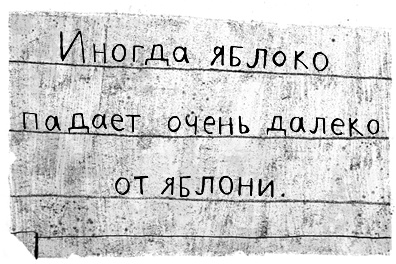 Иногда яблоко
падает очень далеко
от яблони.